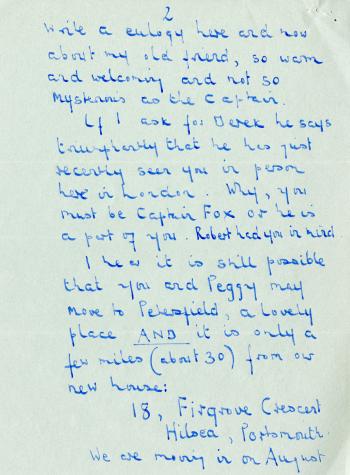 2
write a eulogy here and now
about my old friend, so warm
and welcoming and not so
mysterious as the Captain.
If I ask for Derek he says
triumphantly that he has just
recently seen you in person
here in London. Why, you
must be Captain Fox or he is
a part of you. Robert had you in mind.
I hear it is still possible
that you and Peggy may
move to Petersfield, a lovely
place AND it is only a
few miles (about 30) from our
new house:
18, Firgrove Crescent
Hilsea, Portsmouth.
We are moving in on August